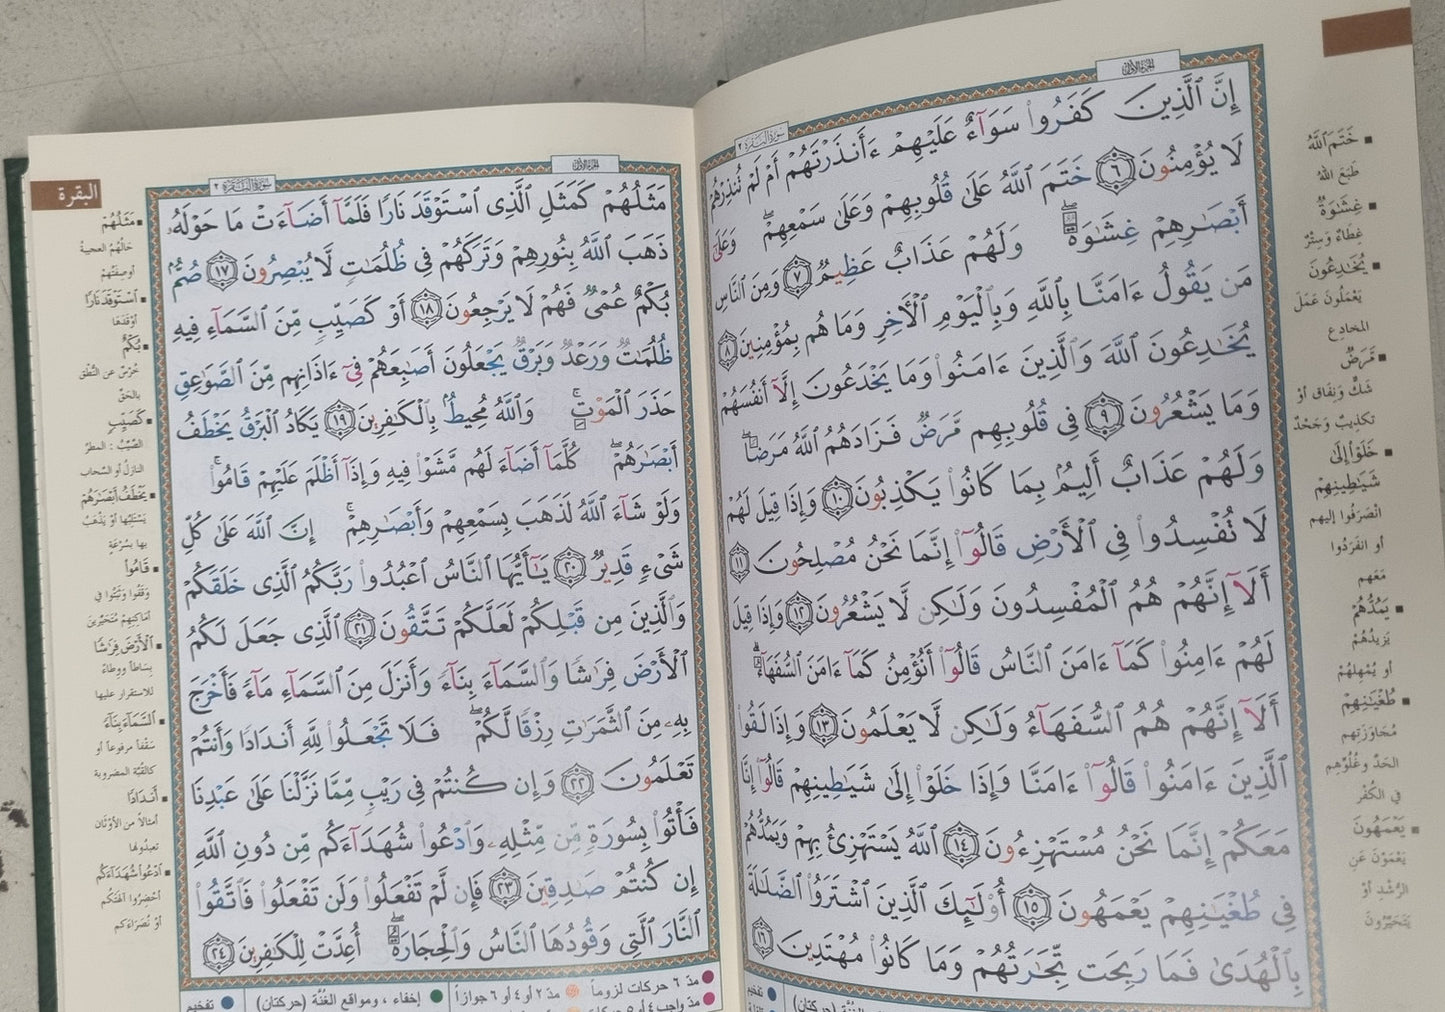 الجزء الأول
سورة البقرة ٢
إِنَّ ٱلَّذِينَ كَفَرُوا۟ سَوَآءٌ عَلَيْهِمْ ءَأَنذَرْتَهُمْ أَمْ لَمْ تُنذِرْهُمْ
لَا يُؤْمِنُونَ ٦ خَتَمَ ٱللَّهُ عَلَىٰ قُلُوبِهِمْ وَعَلَىٰ سَمْعِهِمْ ۖ وَعَلَىٰٓ
أَبْصَـٰرِهِمْ غِشَـٰوَةٌ ۖ وَلَهُمْ عَذَابٌ عَظِيمٌ ٧ وَمِنَ ٱلنَّاسِ
مَن يَقُولُ ءَامَنَّا بِٱللَّهِ وَبِٱلْيَوْمِ ٱلْـَٔاخِرِ وَمَا هُم بِمُؤْمِنِينَ ٨
يُخَـٰدِعُونَ ٱللَّهَ وَٱلَّذِينَ ءَامَنُوا۟ وَمَا يَخْدَعُونَ إِلَّآ أَنفُسَهُمْ
وَمَا يَشْعُرُونَ ٩ فِى قُلُوبِهِم مَّرَضٌ فَزَادَهُمُ ٱللَّهُ مَرَضًا ۖ
وَلَهُمْ عَذَابٌ أَلِيمٌۢ بِمَا كَانُوا۟ يَكْذِبُونَ ١٠ وَإِذَا قِيلَ لَهُمْ
لَا تُفْسِدُوا۟ فِى ٱلْأَرْضِ قَالُوٓا۟ إِنَّمَا نَحْنُ مُصْلِحُونَ ١١
أَلَآ إِنَّهُمْ هُمُ ٱلْمُفْسِدُونَ وَلَـٰكِن لَّا يَشْعُرُونَ ١٢ وَإِذَا قِيلَ
لَهُمْ ءَامِنُوا۟ كَمَآ ءَامَنَ ٱلنَّاسُ قَالُوٓا۟ أَنُؤْمِنُ كَمَآ ءَامَنَ ٱلسُّفَهَآءُ ۗ
أَلَآ إِنَّهُمْ هُمُ ٱلسُّفَهَآءُ وَلَـٰكِن لَّا يَعْلَمُونَ ١٣ وَإِذَا لَقُوا۟
ٱلَّذِينَ ءَامَنُوا۟ قَالُوٓا۟ ءَامَنَّا وَإِذَا خَلَوْا۟ إِلَىٰ شَيَـٰطِينِهِمْ قَالُوٓا۟ إِنَّا
مَعَكُمْ إِنَّمَا نَحْنُ مُسْتَهْزِءُونَ ١٤ ٱللَّهُ يَسْتَهْزِئُ بِهِمْ وَيَمُدُّهُمْ
فِى طُغْيَـٰنِهِمْ يَعْمَهُونَ ١٥ أُو۟لَـٰٓئِكَ ٱلَّذِينَ ٱشْتَرَوُا۟ ٱلضَّلَـٰلَةَ
بِٱلْهُدَىٰ فَمَا رَبِحَت تِّجَـٰرَتُهُمْ وَمَا كَانُوا۟ مُهْتَدِينَ ١٦
خَتَمَ ٱللَّهُ
طَبَعَ اللهُ
غِشَـٰوَةٌ
غِطَاءٌ وَسِتْرٌ
يُخَـٰدِعُونَ
يَعْمَلُونَ عَمَلَ
المخادِع
مَّرَضٌ
شَكٌّ وَنِفَاقٌ أوْ
تكذيبٌ وَجَحْدٌ
خَلَوْا۟ إِلَىٰ
شَيَـٰطِينِهِمْ
انْصَرَفُوا إليهم
أو انفَرَدُوا
مَعَهم
يَمُدُّهُمْ
يَزيدُهُمْ
أو يُمْهِلهُمْ
طُغْيَـٰنِهِمْ
مُجَاوَزَتِهم
الحَدَّ وغُلُوِّهِم
في الكُفْر
يَعْمَهُونَ
يَعْمَوْنَ عَنِ
الرُّشْدِ أوْ
يَتَحَيَّرُونَ
البقرة
الجزء الأول
سورة البقرة ٢
مَثَلُهُمْ كَمَثَلِ ٱلَّذِى ٱسْتَوْقَدَ نَارًا فَلَمَّآ أَضَآءَتْ مَا حَوْلَهُۥ
ذَهَبَ ٱللَّهُ بِنُورِهِمْ وَتَرَكَهُمْ فِى ظُلُمَـٰتٍ لَّا يُبْصِرُونَ ١٧ صُمٌّۢ
بُكْمٌ عُمْىٌ فَهُمْ لَا يَرْجِعُونَ ١٨ أَوْ كَصَيِّبٍ مِّنَ ٱلسَّمَآءِ فِيهِ
ظُلُمَـٰتٌ وَرَعْدٌ وَبَرْقٌ يَجْعَلُونَ أَصَـٰبِعَهُمْ فِىٓ ءَاذَانِهِم مِّنَ ٱلصَّوَٰعِقِ
حَذَرَ ٱلْمَوْتِ ۚ وَٱللَّهُ مُحِيطٌۢ بِٱلْكَـٰفِرِينَ ١٩ يَكَادُ ٱلْبَرْقُ يَخْطَفُ
أَبْصَـٰرَهُمْ ۖ كُلَّمَآ أَضَآءَ لَهُم مَّشَوْا۟ فِيهِ وَإِذَآ أَظْلَمَ عَلَيْهِمْ قَامُوا۟ ۚ
وَلَوْ شَآءَ ٱللَّهُ لَذَهَبَ بِسَمْعِهِمْ وَأَبْصَـٰرِهِمْ ۚ إِنَّ ٱللَّهَ عَلَىٰ كُلِّ
شَىْءٍ قَدِيرٌ ٢٠ يَـٰٓأَيُّهَا ٱلنَّاسُ ٱعْبُدُوا۟ رَبَّكُمُ ٱلَّذِى خَلَقَكُمْ
وَٱلَّذِينَ مِن قَبْلِكُمْ لَعَلَّكُمْ تَتَّقُونَ ٢١ ٱلَّذِى جَعَلَ لَكُمُ
ٱلْأَرْضَ فِرَٰشًا وَٱلسَّمَآءَ بِنَآءً وَأَنزَلَ مِنَ ٱلسَّمَآءِ مَآءً فَأَخْرَجَ
بِهِۦ مِنَ ٱلثَّمَرَٰتِ رِزْقًا لَّكُمْ ۖ فَلَا تَجْعَلُوا۟ لِلَّهِ أَندَادًا وَأَنتُمْ
تَعْلَمُونَ ٢٢ وَإِن كُنتُمْ فِى رَيْبٍ مِّمَّا نَزَّلْنَا عَلَىٰ عَبْدِنَا
فَأْتُوا۟ بِسُورَةٍ مِّن مِّثْلِهِۦ وَٱدْعُوا۟ شُهَدَآءَكُم مِّن دُونِ ٱللَّهِ
إِن كُنتُمْ صَـٰدِقِينَ ٢٣ فَإِن لَّمْ تَفْعَلُوا۟ وَلَن تَفْعَلُوا۟ فَٱتَّقُوا۟
ٱلنَّارَ ٱلَّتِى وَقُودُهَا ٱلنَّاسُ وَٱلْحِجَارَةُ ۖ أُعِدَّتْ لِلْكَـٰفِرِينَ ٢٤
مَثَلُهُمْ
حَالُهُمُ العجيبةُ
أوصِفَتُهمْ
ٱسْتَوْقَدَ نَارًا
أوْقَدَهَا
بُكْمٌ
خُرْسٌ عن النُّطْقِ
بالحَقّ
كَصَيِّبٍ
الصَّيِّبُ : المطرُ
النازلُ أو السَّحابِ
يَخْطَفُ أَبْصَـٰرَهُمْ
يَسْتَلِبُها أوْ يَذْهَبُ
بها بسُرْعَةٍ
قَامُوا۟
وَقَفُوا وَثَبَتُوا في
أماكِنِهِمْ مُتَحَيِّرينَ
ٱلْأَرْضَ فِرَٰشًا
بِسَاطاً وَوِطَاءً
للاستقرار عليها
ٱلسَّمَآءَ بِنَآءً
سَقْفاً مرفوعاً أو
كالقُبَّة المضروبة
أَندَادًا
أمثالاً من الأوْثَان
تعبدُونها
ٱدْعُوا۟ شُهَدَآءَكُم
أحْضِرُوا آلهَتَكُم
أوْ نُصَرَاءَكم
مدّ ٦ حركات لزوماً
مدّ ٢ أو ٤ أو ٦ جوازاً
إخفاء ، ومواقع الغُنَّة (حركتان)
تفخيم